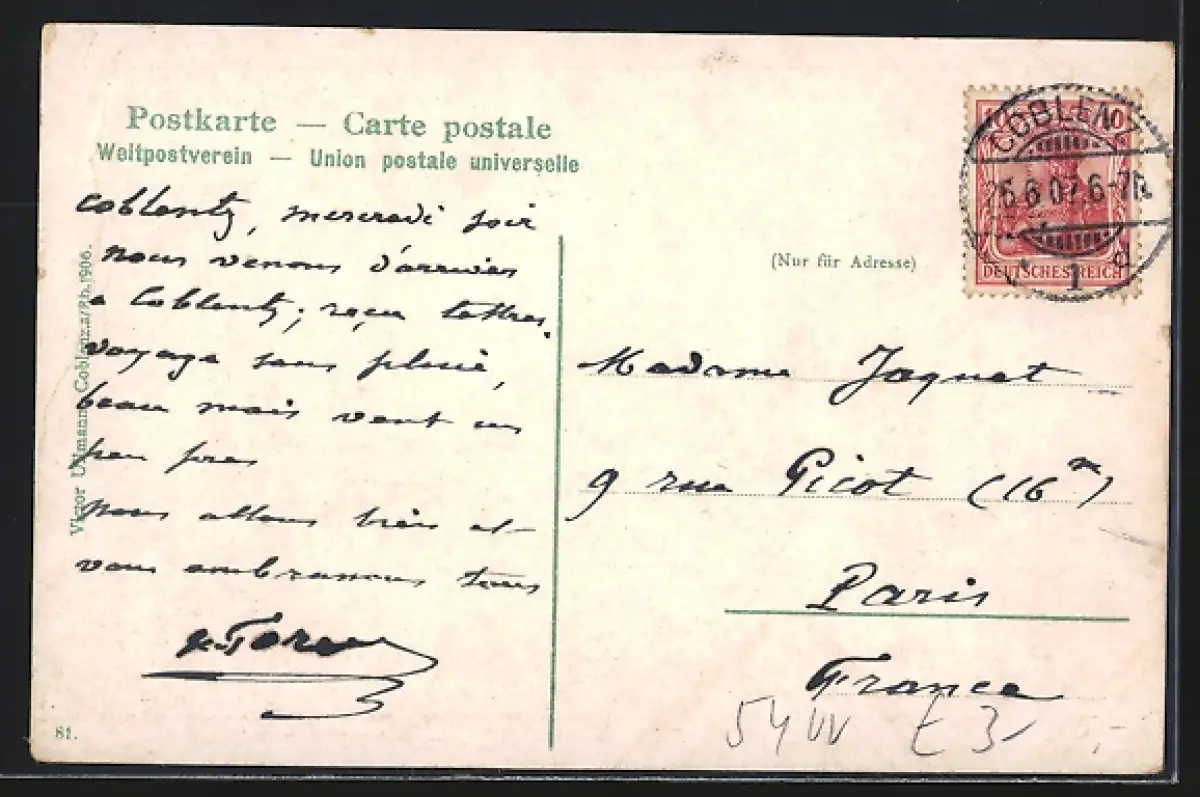 Postkarte — Carte postale
Weltpostverein — Union postale universelle
Coblentz, mercredi soir
nous venons d'arriver
a Coblentz; reçu lettres.
voyage sans pluie,
beau mais vent un
peu frais
nous allons bien et
vous embrassons tous
Victor Ullmann, Coblenz a/Rh. 1906.
81.
(Nur für Adresse)
COBLENZ
6-7N
1 d
10 10
DEUTSCHES REICH
Madame Jaquet
9 rue Picot (16e)
Paris
France